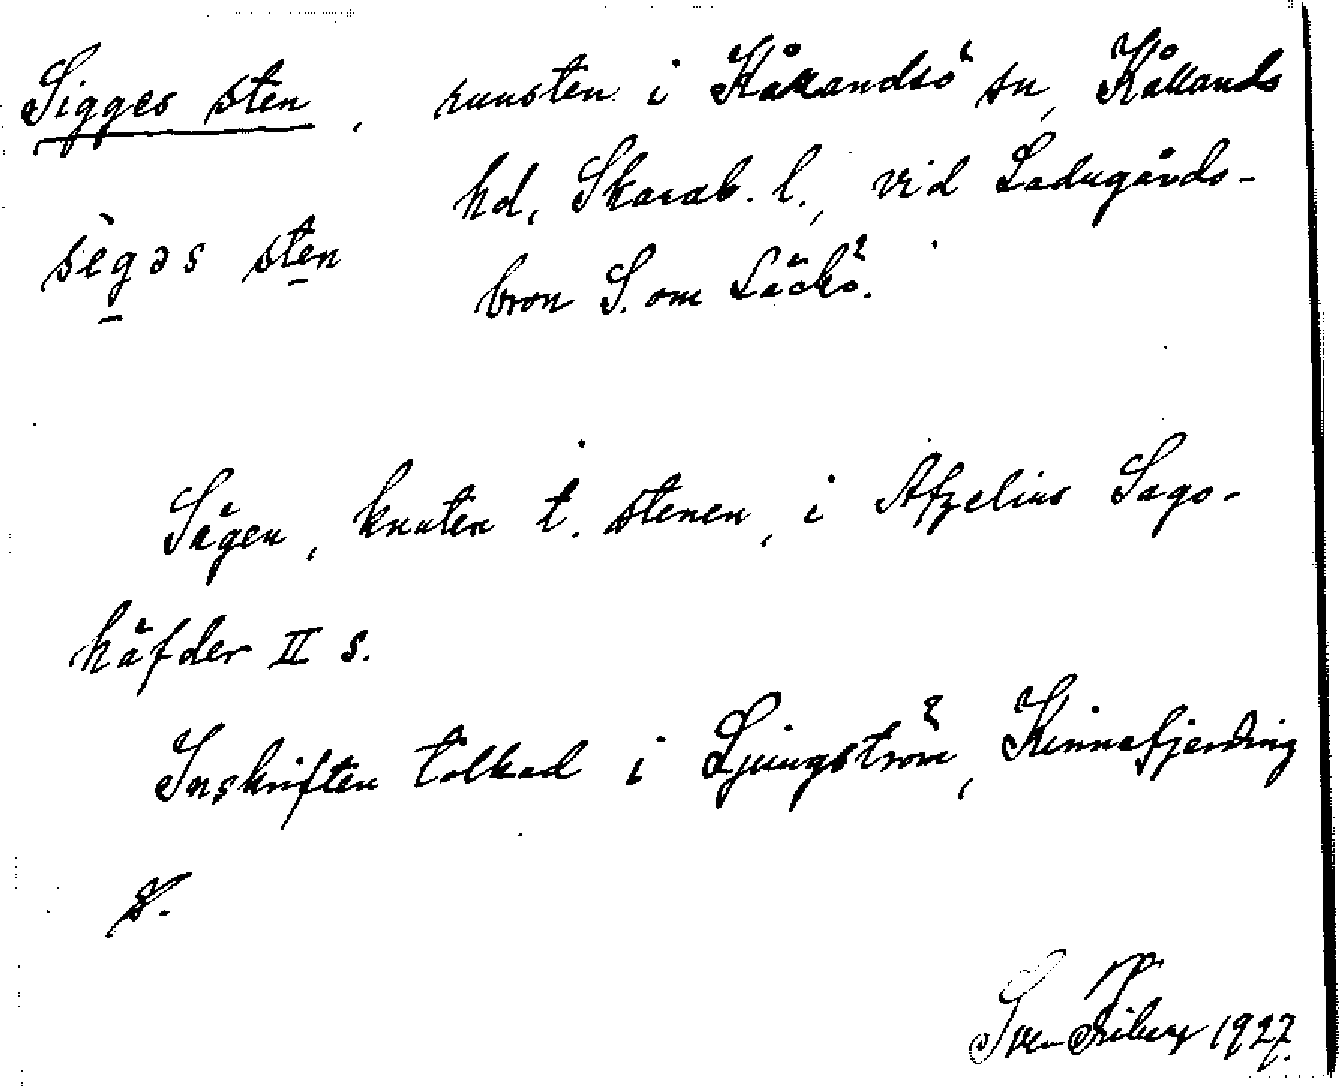 Sigges sten, runsten i Kållandsö sn, Kållands
hd, Skarab. l., vid Ladugårds-
sègəs sten
bron S. om Läckö.
Sägen, knuten t. stenen, i Afzelius Sago-
häfder II s.
Inskriften tolkad i Ljungström, Kinnefjerding
s.
Sven Friberg 1927.